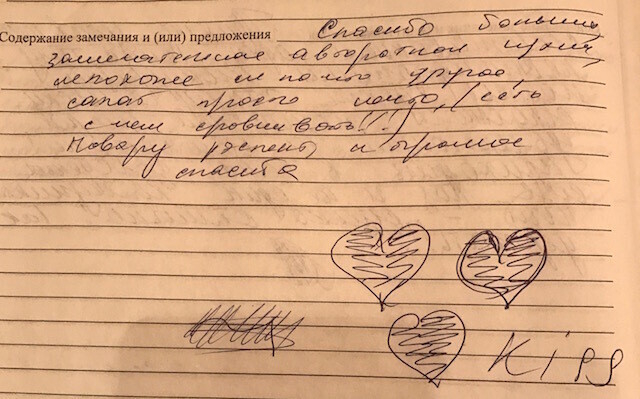 Содержание замечания и (или) предложения Спасибо большое
замечательная авторская кухня,
непохоже ни на что другое,
салат просто есть
с чем сравнивать!!!)
Повару респект и огромное
спасибо
Kiss